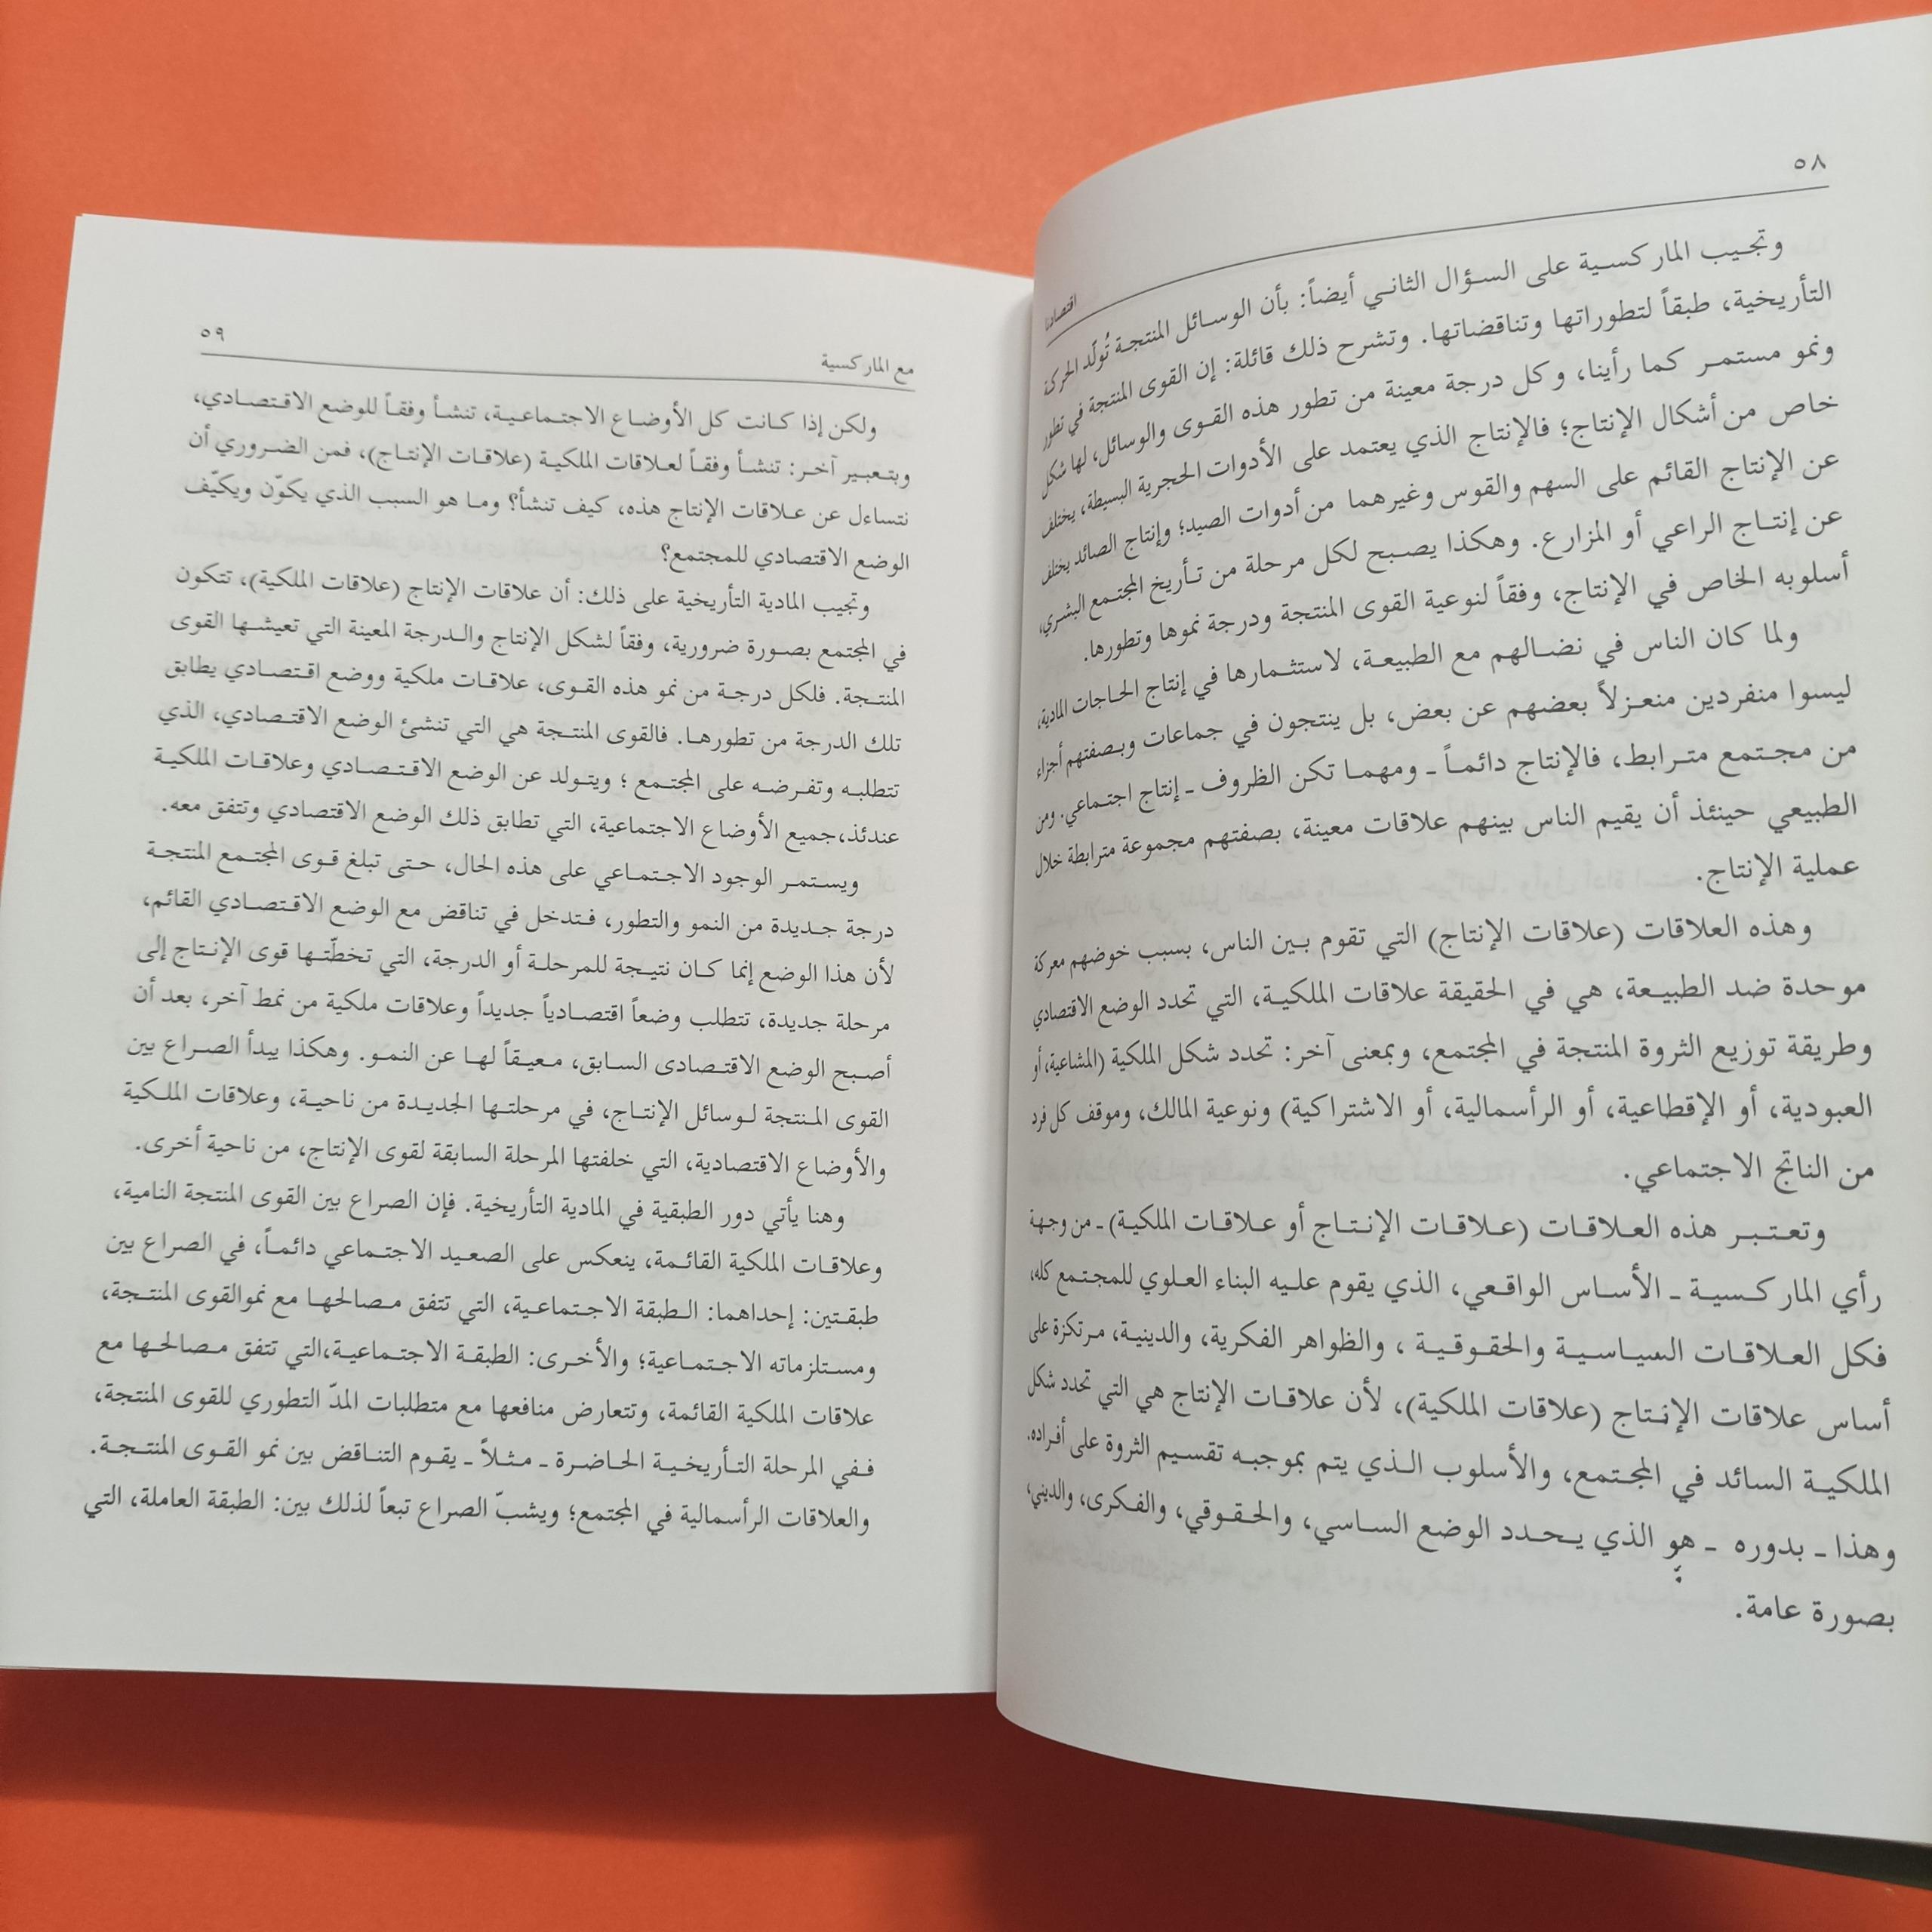 ٥٨
اقتصادنا
وتجـيب الماركسـية على السـؤال الثانـي أيضاً: بأن الوسـائل المنتجـة تُولّد الحركة
التأريخية، طبقاً لتطوراتها وتناقضاتها. وتشرح ذلك قائلة: إن القوى المنتجة في تطور
ونمو مستمـر كما رأينا، وكل درجة معينة من تطور هذه القـوى والوسائل، لها شكل
خاص من أشكال الإنتاج؛ فالإنتاج الذي يعتمد على الأدوات الحجرية البسيطة، يختلف
عن الإنتاج القائم على السهم والقوس وغيرهما من أدوات الصيد؛ وإنتاج الصائد يختلف
عن إنتـاج الراعي أو المزارع. وهكذا يصـبح لكل مرحلة من تـأريخ المجتـمع البشـري،
أسلوبه الخاص في الإنتاج، وفقاً لنوعية القوى المنتجة ودرجة نموها وتطورها.
ولما كان الناس في نضـالهم مع الطبيعـة، لاستثـمارها في إنتاج الحـاجات المادية،
ليسوا منفردين منعـزلاً بعضهم عن بعض، بل ينتجون في جماعات وبـصفتهم أجزاء
من مجـتمع متـرابط، فالإنتاج دائمـاً ـ ومهمـا تكن الظروف ـ إنتاج اجتـماعي. ومن
الطبيعي حينئذ أن يقيم الناس بينهم علاقات معينة، بصفتهم مجموعة مترابطة خلال
عملية الإنتاج.
وهذه العلاقات (علاقات الإنتاج) التي تقوم بـين الناس، بسبب خوضهم معركة
موحدة ضد الطبيـعة، هي في الحقيقة علاقات الملكيـة، التي تحدد الوضع الاقتصادي
وطريقة توزيع الثروة المنتجة في المجتمع، وبمعنى آخر: تحدد شكل الملكية (المشاعية، أو
العبودية، أو الإقطاعية، أو الرأسمالية، أو الاشتراكية) ونوعية المالك، وموقف كل فرد
من الناتج الاجتماعي.
وتعـتـبـر هذه العـلاقـات (عـلاقـات الإنـتـاج أو عـلاقـات الملكيـة) ـ من وجـهة
رأي الماركـسيـة ـ الأسـاس الواقـعي، الذي يقوم علـيه البناء العـلوي للمجـتمع كله،
فكل العـلاقـات السيـاسـيـة والحقـوقـيـة ، والظواهر الفكرية، والدينية، مرتكزة على
أساس علاقات الإنـتاج (علاقات الملكية)، لأن علاقـات الإنتاج هي التي تحدد شكل
الملكيـة السائد في المجتمع، والأسلوب الـذي يتم بموجبـه تقسـيم الثروة على أفـراده.
وهذا ـ بدوره ـ هو الذي يـحـدد الوضع السـاسي، والحـقـوقي، والفـكرى، والديني،
بصورة عامة.
مع الماركسية
٥٩
ولكن إذا كـانت كل الأوضـاع الاجتـماعـيـة، تنشـأ وفقـاً للوضع الاقـتصـادي،
وبتـعبـير آخـر: تنشـأ وفقـاً لعـلاقات الملكيـة (علاقـات الإنتـاج)، فمن الضـروري أن
نتساءل عن عـلاقات الإنتاج هذه، كيف تنشأ؟ ومـا هو السبب الذي يكوّن ويكيّف
الوضع الاقتصادي للمجتمع؟
وتجيب المادية التأريخية على ذلك: أن علاقات الإنتاج (علاقات الملكية)، تتكون
في المجتمع بصـورة ضرورية، وفقاً لشكل الإنتاج والـدرجة المعينة التي تعيشـها القوى
المنتـجة. فلكل درجـة من نمو هذه القـوى، علاقـات ملكية ووضع اقـتصـادي يطابق
تلك الدرجة من تطورهـا. فالقوى المنتـجة هي التي تنشئ الوضع الاقتـصادي، الذي
تتطلبـه وتفـرضـه على المجتـمع ؛ ويتـولد عن الوضع الاقـتـصـادي وعلاقـات الملكيـة
عندئذ،جميع الأوضاع الاجتماعية، التي تطابق ذلك الوضع الاقتصادي وتتفق معه.
ويستـمـر الوجود الاجـتمـاعي على هذه الحال، حـتى تبلغ قـوى المجتـمع المنتجـة
درجة جـديدة من النمو والتطور، فـتدخل في تناقض مع الوضع الاقـتصـادي القائم،
لأن هذا الوضع إنما كـان نتيـجة للمرحلـة أو الدرجة، التي تخطّتـها قوى الإنـتاج إلى
مرحلة جديدة، تتطلب وضعاً اقتصـادياً جديداً وعلاقات ملكية من نمط آخر، بعد أن
أصـبح الوضع الاقتـصادى السـابق، مـعيـقاً لهـا عن النمـو. وهكذا يبدأ الصـراع بين
القوى المـنتجة لـوسائل الإنتـاج، في مرحلتـها الجديـدة من ناحيـة، وعلاقات الملكية
والأوضاع الاقتصادية، التي خلفتها المرحلة السابقة لقوى الإنتاج، من ناحية أخرى.
وهنا يأتي دور الطبقية في المادية التأريخية. فإن الصراع بين القوى المنتجة النامية،
وعلاقـات الملكية القائـمة، ينعكس على الصعـيد الاجتـماعي دائمـاً، في الصراع بين
طبقـتين: إحداهما: الـطبقة الاجـتماعـية، التي تتفق مـصالحهـا مع نموالقوى المنتـجة،
ومسـتلزماته الاجـتـماعية؛ والأخـرى: الطبقـة الاجتـماعيـة،التي تتفق مـصالحـها مع
علاقات الملكية القائمة، وتتعارض منافعها مع متطلبات المدّ التطوري للقوى المنتجة،
فـفي المرحلة التـأريخـيـة الحـاضـرة ـ مـثـلاً ـ يقـوم التنـاقض بين نمو القـوى المنتـجـة.
والعلاقات الرأسمالية في المجتمع؛ ويشبّ الصراع تبعاً لذلك بين: الطبقة العاملة، التي